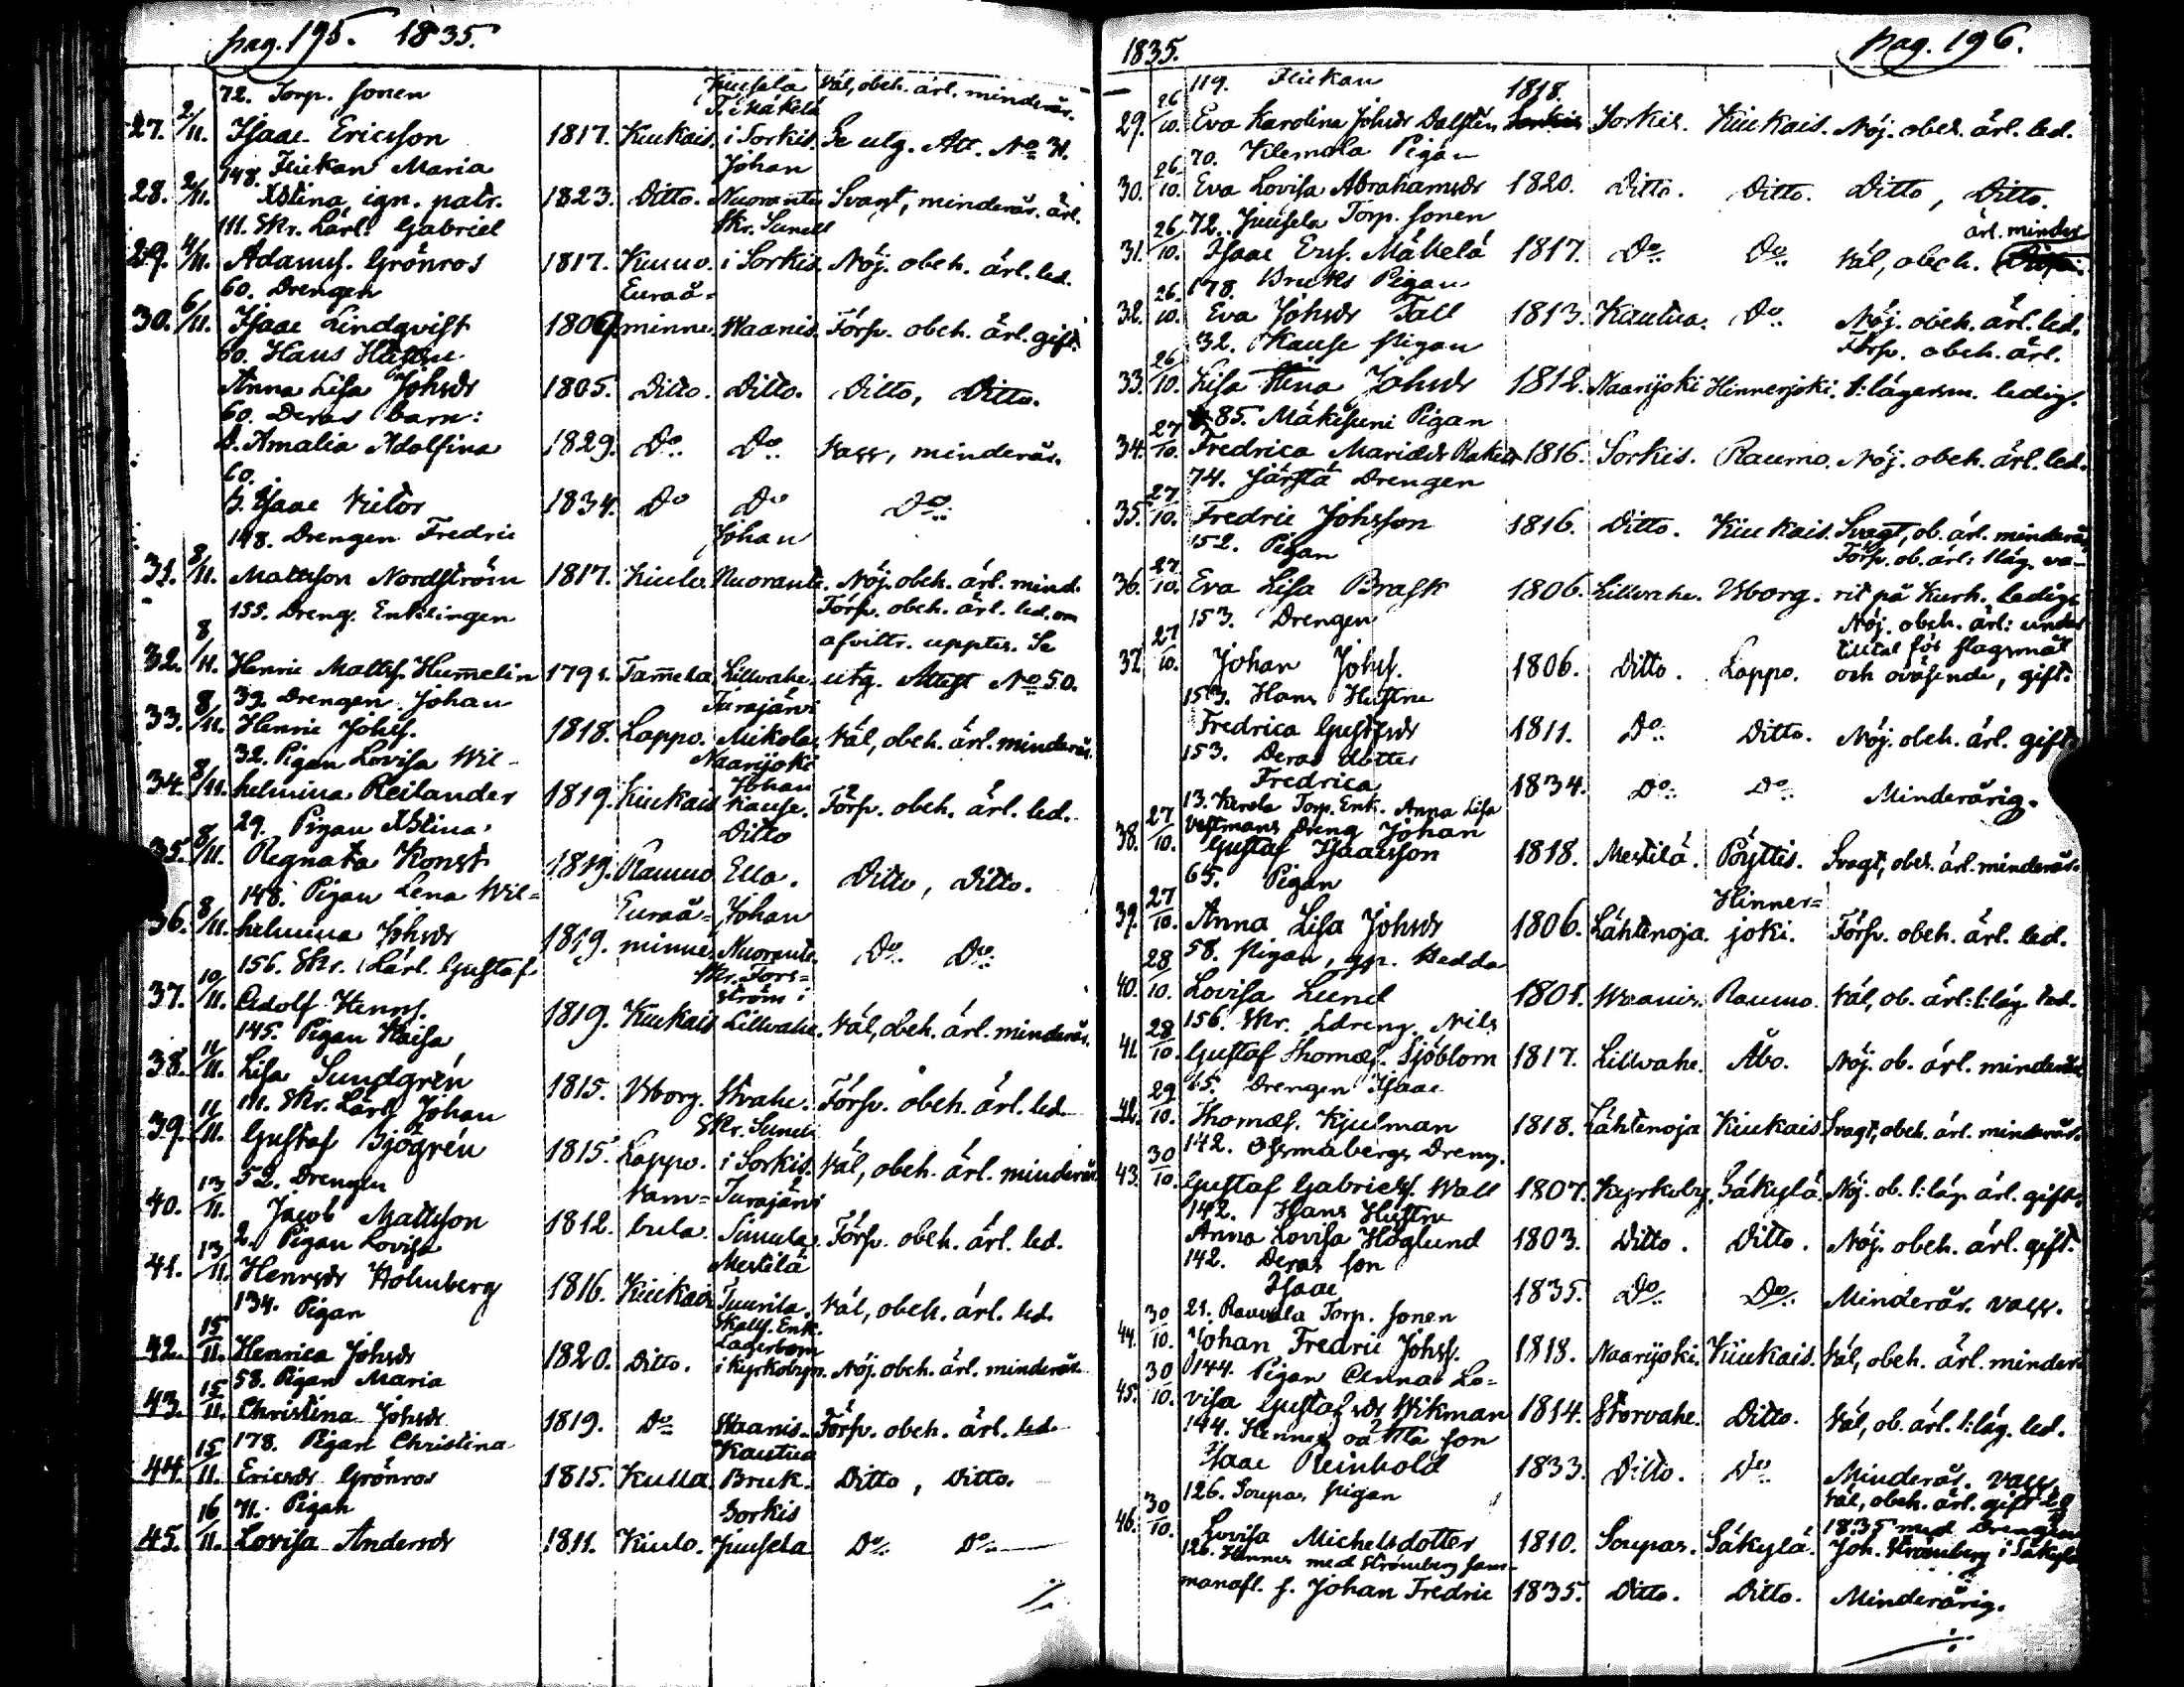 pag. 195. 1835.
72. Torp. sonen Juusela Väl, obeh. ärl. minderår.
T. Mäkelä
27. 2/11. Isaac Ericsson 1817. Kiukais. i Sorkis. Se utg. Att. No 31.
148. Flickan Maria Johan
28. 2/11. Xstina, ign. patr. 1823. Ditto. Nuorante Svagt, minderår. ärl.
111. Skr. Lärl. Gabriel Skr. Sunell
29. 4/11. Adamss. Grönros 1817. Kiulo. i Sorkis. Nöj. obeh. ärl. led.
60. Drengen Euraå=
30. 6/11. Isaac Lindqvist 1809. minne. Waanis. Förсv. obeh. ärl. gift.
60. Hans Hustru
Anna Lisa Johsdr 1805. Ditto. Ditto. Ditto, Ditto.
60. Deras barn:
D. Amalia Adolfina 1829. Do Do Vacc, minderår.
60.
S. Isaac Victor 1834. Do Do Do
148. Drengen Fredric Johan
31. 8/11. Mattsson Nordström 1817. Kiulo. Nuorante. Nöj. obeh. ärl. mind.
155. Dreng. Enklingen Försv. obeh. ärl. led. om
afvittr. upptes. Se
32. 8/11. Henric Mattss. Hummelin 1791. Tammela Lillvahe. utg. Attest No 50.
33. Drengen Johan Turajärvi
33. 8/11. Henric Johss. 1818. Lappo. Mikola. Väl, obeh. ärl. minderår.
32. Pigan Lovisa Wil- Naarijoki
Johan
34. 8/11. helmina Reilander 1819. Kiukais Kause. Försv. obeh. ärl. led.
29. Pigan Xstina Ditto
35. 8/11. Regnata Konst 1819. Raumo Ella. Ditto, Ditto.
148. Pigan Lena Wil= Euraå= Johan
36. 8/11. helmina Johsdr 1819. minne Nuorante. Do Do
156. Skr. Lärl. Gustaf Skr. Fors=
ström i
37. 10/11. Adolf Henrss. 1819. Kiukais Lillvahe. Väl, obeh. ärl. minderår.
145. Pigan Kaisa
38. 11/11. Lisa Sundgrén 1815. Wborg. Stvahe. Försv. obeh. ärl. led.
111. Skr. Lärl. Johan Skr. Sunell
39. 11/11. Gustaf Sjögrén 1815. Lappo. i Sorkis. Väl, obeh. ärl. minderår.
52. Drengen Vam= Turajärvi
40. 13/11. Jacob Mattsson 1812. bula. Simula. Försv. obeh. ärl. led.
2. Pigan Lovisa Mestilä
41. 13/11. Henrsdr Holmberg 1816. Kiukais Tuurila. Väl, obeh. ärl. led.
134. Pigan Skallf. Enk.
Lagerbom
42. 15/11. Henrica Johsdr 1820. Ditto. i Kyrkobyn. Nöj. obeh. ärl. minderår.
58. Pigan Maria
43. 15/11. Christina Johsdr 1819. Do Waanis. Försv. obeh. ärl. led.
178. Pigan Christina Kautua
44. 15/11. Ericsdr Grönros 1815. Kulla. Bruk. Ditto, Ditto.
71. Pigan Sorkis
45. 16/11. Lovisa Andersdr 1811. Kiulo. Juusela Do Do
1835. pag. 196.
119. Flickan 1818.
29. 26/10. Eva Karolina Johsdr Dalsten Sorkis. Kiukais. Nöj. obeh. ärl. led.
70. Klemola Pigan
30. 26/10. Eva Lovisa Abrahamsdr 1820. Ditto. Ditto. Ditto, Ditto.
72. Juusela Torp. sonen ärl. minder
31. 26/10. Isaac Erss. Mäkelä 1817. Do Do Väl, obeh.
178. Bruks Pigan
32. 26/10. Eva Johsdr Tall 1813. Kautua. Do Nöj. obeh. ärl. led.
32. Kause pigan Försv. obeh. ärl.
33. 26/10. Lisa Stina Johsdr 1812. Naarijoki Hinnerjoki. 1: lägersm. ledig.
85. Mäkisuni Pigan
34. 27/10. Fredrica Mariadr 1816. Sorkis. Raumo. Nöj. obeh. ärl. led.
74. Järstä Drengen
35. 27/10. Fredric Johsson 1816. Ditto. Kiukais. Svagt, ob. ärl. minderår
152. Pigan Försv. ob. ärl: 1 läg. va-
36. 27/10. Eva Lisa Brask 1806. Lillvahe. Wborg. rit på Kurh. ledig.
153. Drengen Nöj. obeh. ärl: under
tilltal för slagsmål
37. 27/10. Johan Johss. 1806. Ditto. Lappo. och oväsende, gift.
153. Hans Hustru
Fredrica Gustfsdr 1811. Do Ditto. Nöj. obeh. ärl. gift
153. Deras dotter
Fredrica 1834. Do Do Minderårig.
13. Kerola Torp. Enk. Anna Lisa
Vestmans Dreng Johan
38. 27/10. Gustaf Isaacsson 1818. Mestilä. Pöyttis. Svagt, obeh. ärl. minderår.
65. Pigan Hinner=
39. 27/10. Anna Lisa Johsdr 1806. Lähtenoja. joki. Försv. obeh. ärl. led.
58. pigan, gp. Hedda
40. 28/10. Lovisa Lund 1801. Waanis. Raumo. Väl, ob. ärl: 1: läg. led.
156. Skr. Ldreng. Nils
41. 28/10. Gustaf Thomass. Sjöblom 1817. Lillvahe. Åbo. Nöj. ob. ärl. minderår
65. Drengen Isaac
42. 29/10. Thomass. Kjulman 1818. Lähtenoja Kiukais Svagt, obeh. ärl. minderår.
142. Ossmabergs Dreng.
43. 30/10. Gustaf Gabrielss. Wall 1807. Kyrkoby. Säkylä. Nöj. ob. 1: läg. ärl. gift.
142. Hans Hustru
Anna Lovisa Höglund 1803. Ditto. Ditto. Nöj. obeh. ärl. gift.
142. Deras son
Isaac 1835. Do Do Minderår. vacc.
21. Rauvola Torp. sonen
44. 30/10. Johan Fredric Johss. 1818. Naarijoki. Kiukais. Väl, obeh. ärl. minder
144. Pigan Anna Lo=
45. 30/10. visa Gustafsdr Wikman 1814. Storvahe. Ditto. Väl, ob. ärl. 1: läg. led.
144. Hennes oäkta son
Isaac Reinhold 1833. Ditto. Do Minderår. vacc.
126. Soupas pigan Väl, obeh. ärl. gift
1835 med Drengen
46. 30/10. Lovisa Michelsdotter 1810. Soupas. Säkylä. Joh. Strömberg i Säkylä
126. Hennes med Strömberg sam-
manafl. s. Johan Fredric 1835. Ditto. Ditto. Minderårig.